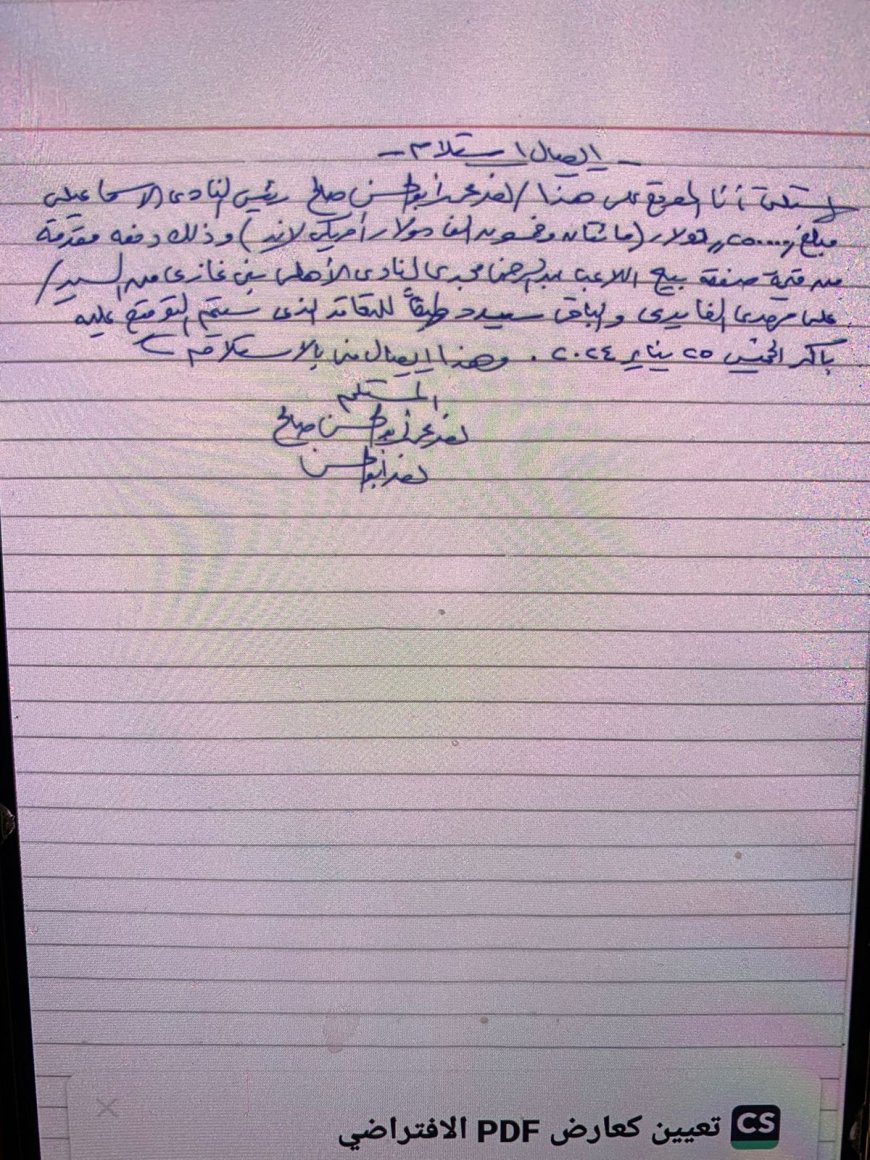 - إيصال استلام -
استلمت أنا الموقع على هذا / نصر محمد أبو الحسن صالح رئيس النادى الاسماعيلى
مبلغ ٢٥٠.٠٠٠ دولار (مائتان وخمسون الفا دولار أمريكى لاغير) وذلك دفعه مقدمة
من قيمة صفقه بيع اللاعب عبدالرحمن مجدى لنادى الأهلى بنى غازى من السيد /
على مهدى الفايدى والباقى سيسدد طبقاً للتعاقد الذى سيتم التوقيع عليه
باكر الخميس ٢٥ يناير ٢٠٢٤ . وهذا إيصال منا بالاستلام
المستلم
نصر محمد أبو الحسن صالح
نصر أبو الحسن
CS تعيين كعارض PDF الافتراضي